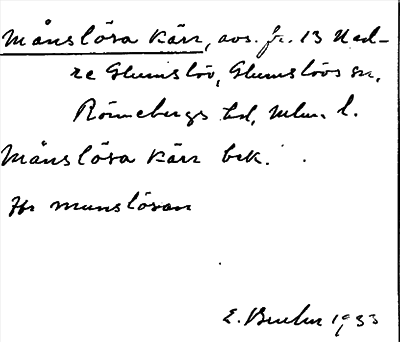 Månslösa Kärr, avs. fr. 13 Ned-
re Glumslöv, Glumslövs sn,
Rönnebergs hd, Mlm. l.
Månslösa Kärr bek.
Hr munslösan
E. Bruhn 1933